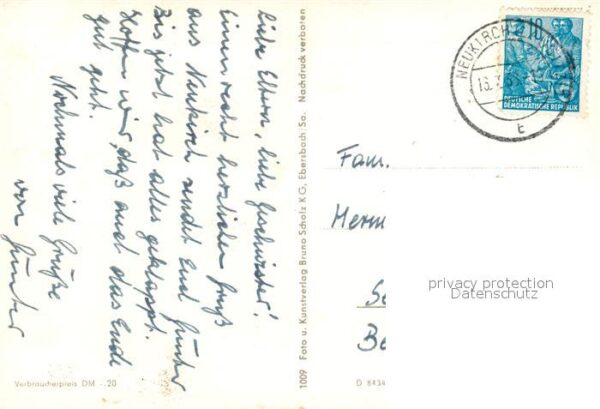 Liebe Eltern, liebe Geschwister!
Einen recht herzlichen Gruß
aus Neukirch sendet Euch Günter
Bis jetzt hat alles geklappt.
Hoffen wir, daß auch das Ende
gut geht.
Nochmals viele Grüße
von Günter
Verbraucherpreis DM -.20
1009 Foto u. Kunstverlag Bruno Scholz KG, Ebersbach Sa. Nachdruck verboten
NEUKIRCH
10
DEUTSCHE
DEMOKRATISCHE REPUBLIK
t
Fam.
Herm
Be
D 8434
privacy protection
Datenschutz